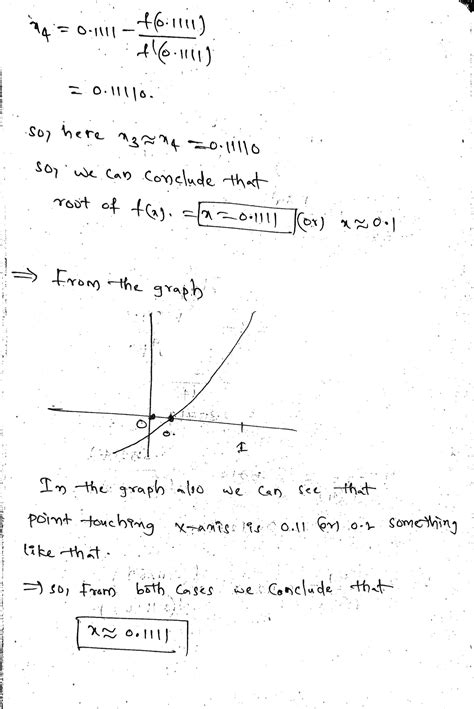 x4 = 0.1111 - f(0.1111) / f'(0.1111)
= 0.11110.
so, here x3 ≈ x4 = 0.11110
so, we can conclude that
root of f(x). = x = 0.1111 (or) x ≈ 0.1
⇒ From the graph
0
0.
1
In the graph also we can see that
point touching x-axis is 0.11 (or) 0.2 something
like that.
⇒ so, From both cases we conclude that
x ≈ 0.1111